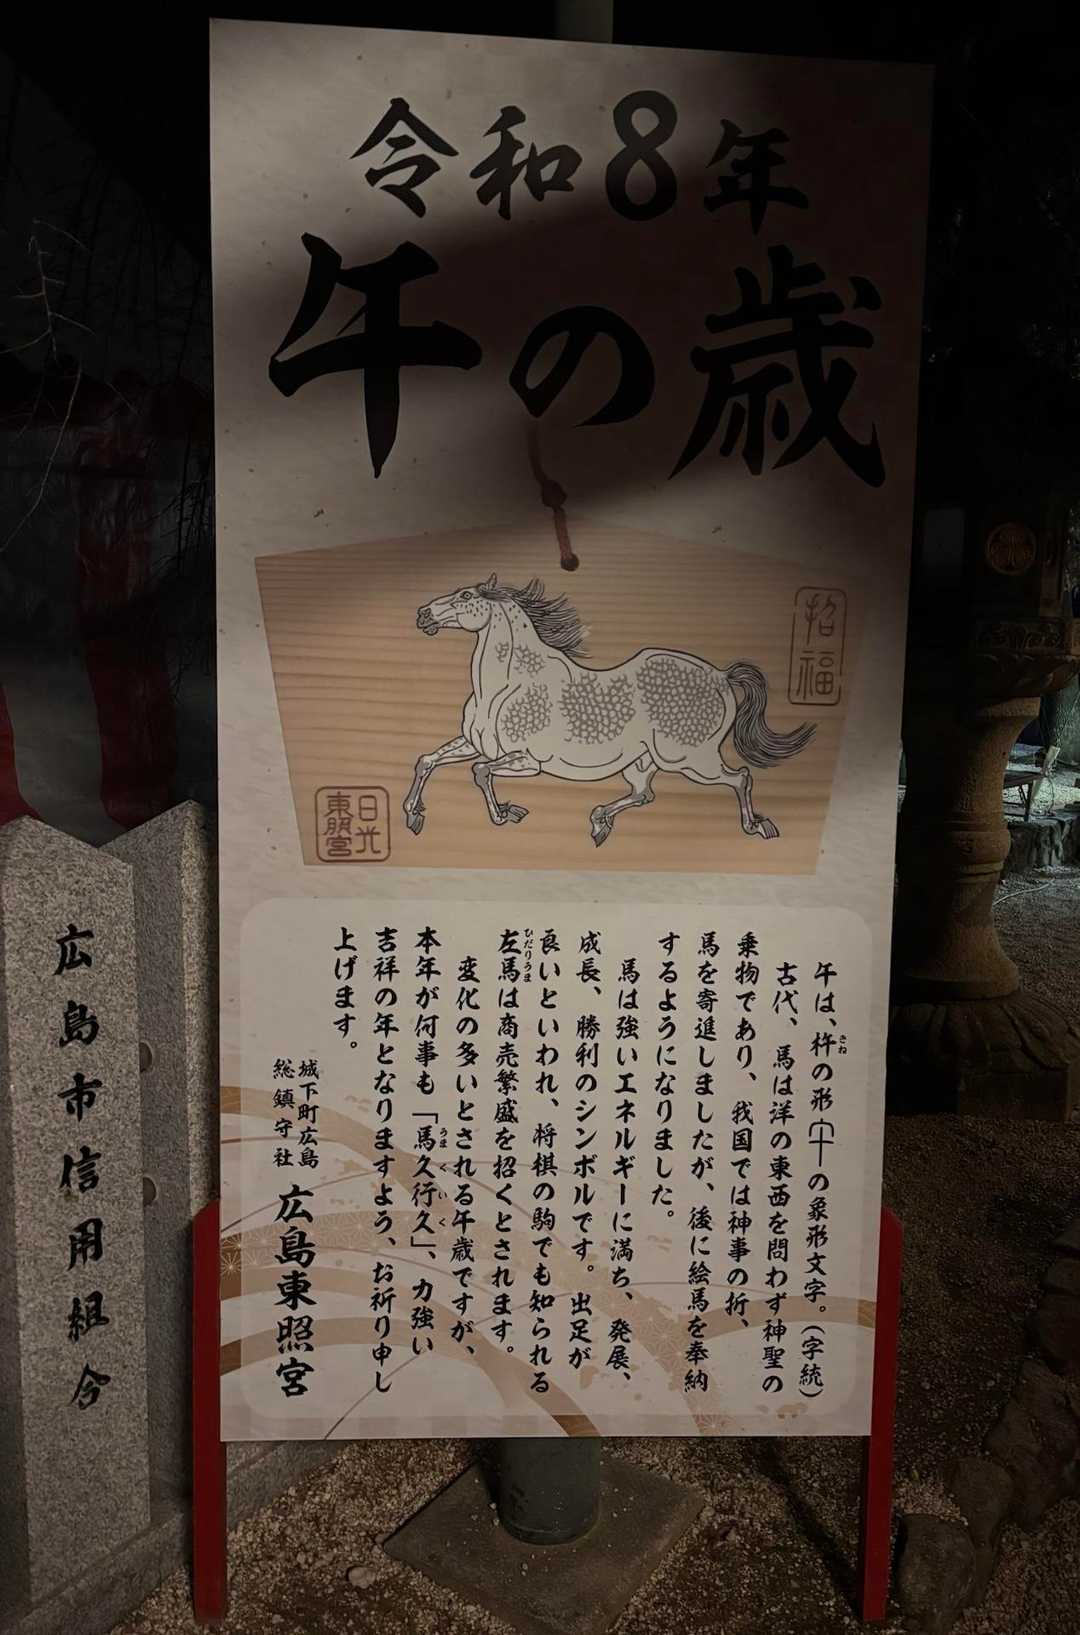 令和8年
午の歳
招福
日光
東照宮
午は、杵の形の象形文字。(字統)
きね
古代、馬は洋の東西を問わず神聖の
乗物であり、我国では神事の折、
馬を寄進しましたが、後に絵馬を奉納
するようになりました。
馬は強いエネルギーに満ち、発展、
成長、勝利のシンボルです。出足が
良いといわれ、将棋の駒でも知られる
左馬は商売繁盛を招くとされます。
ひだりうま
変化の多いとされる午歳ですが、
本年が何事も「馬久行久」、力強い
うまくいく
吉祥の年となりますよう、お祈り申し
上げます。
城下町広島
総鎮守社
広島東照宮
広島市信用組合